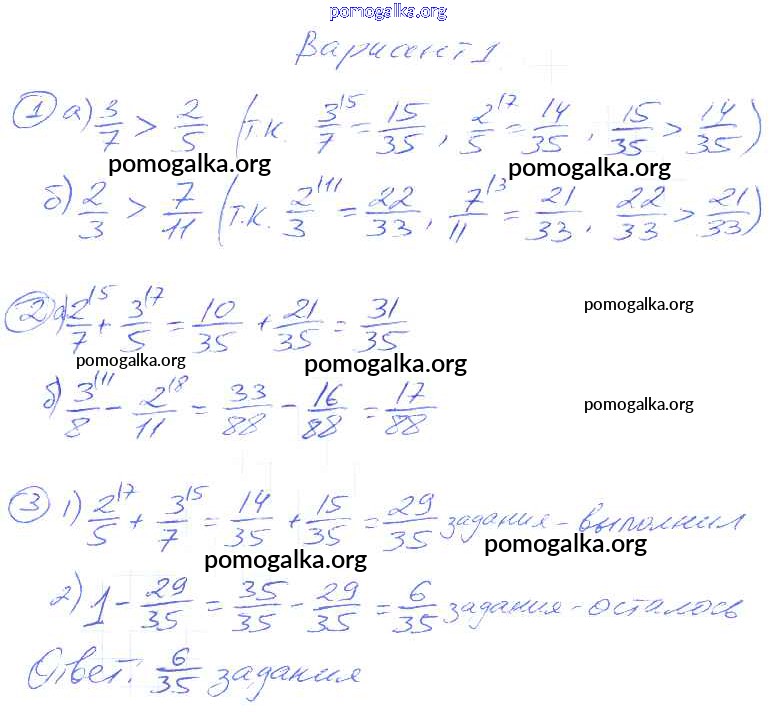 pomogalka.org
Вариант 1
① а) 3/7 > 2/5 (т.к. 3/7 \5 = 15/35, 2/5 \7 = 14/35, 15/35 > 14/35)
pomogalka.org pomogalka.org
б) 2/3 > 7/11 (т.к. 2/3 \11 = 22/33, 7/11 \3 = 21/33, 22/33 > 21/33)
② а) 2/7 \5 + 3/5 \7 = 10/35 + 21/35 = 31/35 pomogalka.org
pomogalka.org pomogalka.org
б) 3/8 \11 - 2/11 \8 = 33/88 - 16/88 = 17/88 pomogalka.org
③ 1) 2/5 \7 + 3/7 \5 = 14/35 + 15/35 = 29/35 задания - выполнил
pomogalka.org pomogalka.org
2) 1 - 29/35 = 35/35 - 29/35 = 6/35 задания - осталось
Ответ: 6/35 задания